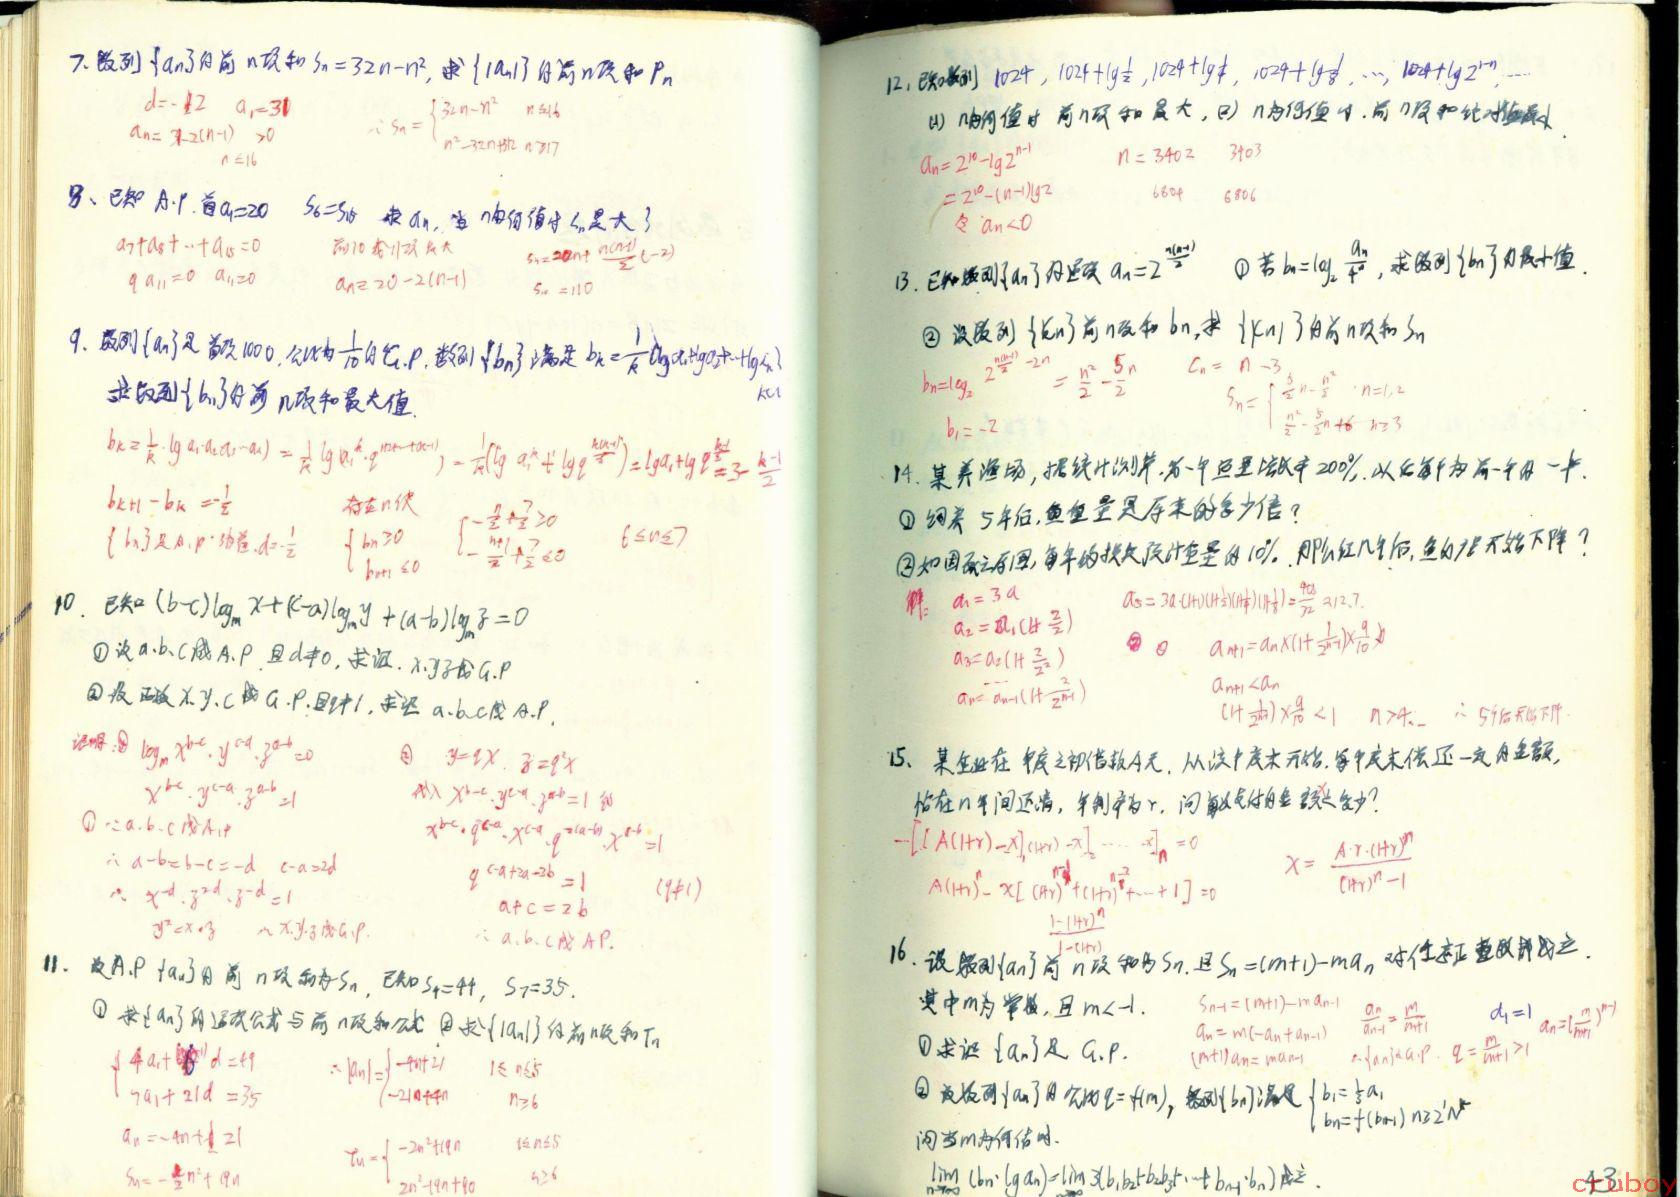 7、数列{an}的前n项和Sn=32n-n²,求{|an|}的前n项和Pn
d=-2 a₁=31
an=31-2(n-1) >0
n≤16
∴Sn={32n-n² n≤16
n²-32n+512 n≥17
8、已知A.P.首a₁=20 S₆=S₁₅ 求an,当n为何值时Sn最大?
a₇+a₈+…+a₁₅=0
9a₁₁=0 a₁₁=0
前10或11项最大
an=20-2(n-1)
Sn=20n+n(n-1)/2(-2)
S₁₀=110
9、数列{an}是首项1000,公比为1/10的G.P,数列{bn}满足bk=1/k(lga₁+lga₂+…+lgak)
求数列{bn}的前n项和最大值.
bk=1/k·lg a₁·a₂·a₃…ak)=1/k lg a₁^k·q^(1+2+…+(k-1))=1/k(lg a₁^k+lg q^(k(k-1)/2))=lga₁+lg q^((k-1)/2)=3-(k-1)/2
bk+1-bk=-1/2
{bn}是A.P. d=-1/2
存在n使
{bn≥0
bn+1≤0
{-n/2+7/2≥0
-(n+1)/2+7/2≤0
6≤n≤7
10. 已知(b-c)logₘx+(c-a)logₘy+(a-b)logₘz=0
①设a.b.c成A.P 且d≠0,求证.x.y.z成G.P
②设正数x.y.c成G.P.且q≠1,求证a.b.c成A.P.
证明: logₘx^(b-c)·y^(c-a)·z^(a-b)=0
x^(b-c)·y^(c-a)·z^(a-b)=1
①∵a.b.c成A.P
∴a-b=b-c=-d c-a=2d
∴x^(-d)·z^(2d)·z^(-d)=1
y²=x·z ∴x.y.z成G.P.
② y=qx. z=q²x
代入x^(b-c)·y^(c-a)·z^(a-b)=1
x^(b-c)·q^(c-a)·x^(c-a)·q^(2(a-b))·x^(a-b)=1
q^(c-a+2a-2b)=1 (q≠1)
a+c=2b
∴a.b.c成A.P.
11. 设A.P{an}的前n项和为Sn,已知S₄=44, S₇=35.
①求{an}的通项公式与前n项和公式 ②求{|an|}的前n项和Tn
{4a₁+6d=44
7a₁+21d=35
an=-4n+21
Sn=-2n²+19n
∴|an|={-4n+21 1≤n≤5
-21+4n n≥6
Tn={-2n²+19n 1≤n≤5
2n²-19n+90 n≥6
12、已知数列1024,1024+lg1/2,1024+lg1/4,1024+lg1/8,…,1024+lg2^(1-n),…
(1)n为何值时前n项和最大,(2)n为何值时.前n项和绝对值最小.
an=2¹⁰-lg2^(n-1)
=2¹⁰-(n-1)lg2
令an<0
n=3402 3403
6804 6806
13、已知数列{an}的通项an=2^(n(n-1)/2) ①若bn=log₂ an/4ⁿ,求数列{bn}的最小值.
②设数列{cn}前n项和bn,求{|cn|}的前n项和Sn
bn=log₂ 2^(n(n-1)/2-2n)=n²/2-5/2n
b₁=-2
cn=n-3
Sn={5/2n-n²/2 n=1,2
n²/2-5/2n+6 n≥3
14、某养渔场,据统计测算,第一年鱼重增长率200%,以后每年为前一年的一半.
①饲养5年后,鱼重量是原来的多少倍?
②如因死亡等原因,每年约损失预计重量的10%.那么经几年后,鱼的产量开始下降?
解: a₁=3a
a₂=a₁(1+2/2)
a₃=a₂(1+2/2²)
an=an-1(1+2/2^(n-1))
a₅=3a·(1+1)(1+1/2)(1+1/4)(1+1/8)=405/32≈12.7.
② an+1=an×(1+1/2^(n-1))×9/10
an+1<an
(1+1/2^(n-1))×9/10<1 n>4… ∴5年后开始下降.
15、某企业在年度之初借款A元,从该年度末开始.每年度末偿还一定的金额,
恰在n年间还清,年利率为r,问每次支付的金额x是多少?
…[[A(1+r)-x]₁(1+r)-x]₂……-x]n=0
A(1+r)ⁿ-x[(1+r)^(n-1)+(1+r)^(n-2)+…+1]=0
1-(1+r)ⁿ/1-(1+r)
x=A·r·(1+r)ⁿ/(1+r)ⁿ-1
16、设数列{an}前n项和为Sn.且Sn=(m+1)-man对任意正整数都成立.
其中m为常数,且m<-1.
①求证{an}是G.P.
Sn-1=(m+1)-man-1
an=m(-an+an-1)
(m+1)an=man-1
an/an-1=m/m+1
∴{an}是G.P. q=m/m+1>1
a₁=1 an=(m/m+1)^(n-1)
②设数列{an}的公比q=f(m),数列{bn}满足{b₁=1/3a₁
bn=f(bn-1) n≥2
问当m为何值时.
lim(bn·lgan)=lim3(b₁b₂+b₂b₃+…+bn-1·bn)成立.
43
ctuboy